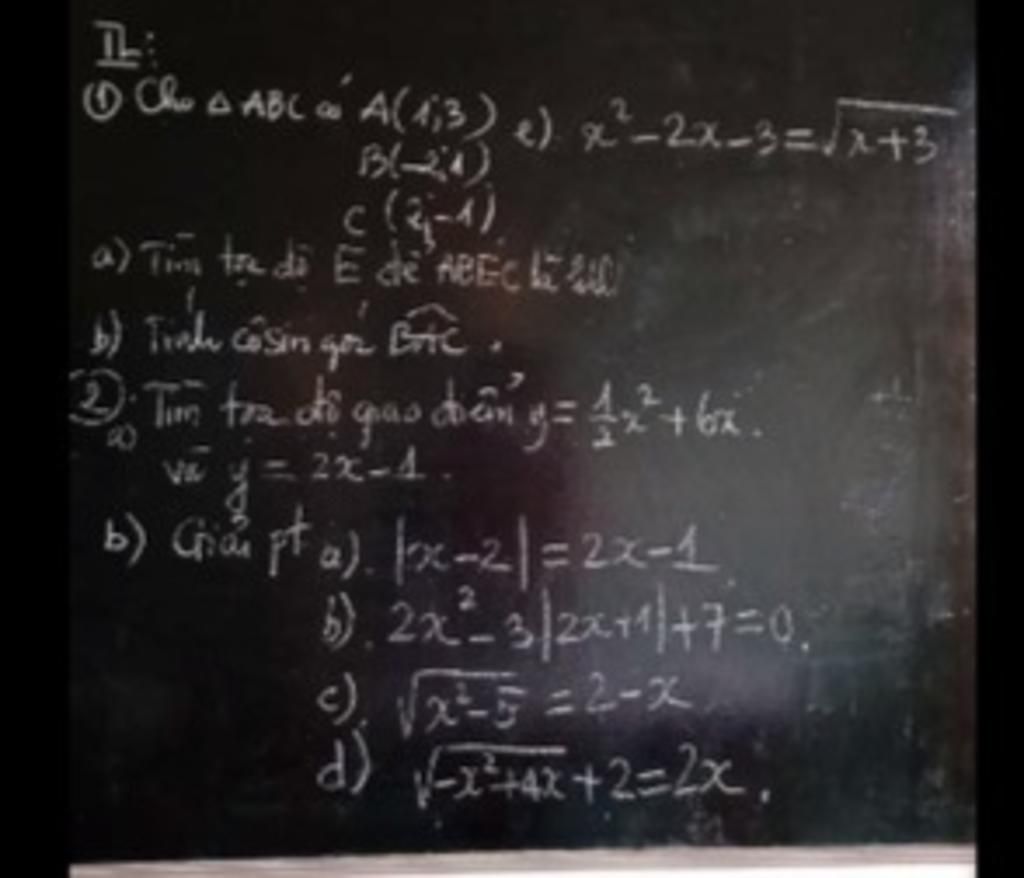 II:
① Cho △ ABC có A(1;3)
B(-2;1)
C (2;-1)
a) Tìm tọa độ E để ABEC là hbh
b) Tính côsin góc BAC.
②. a) Tìm tọa độ giao điểm y = 1/2 x² + 6x.
và y = 2x - 1.
b) Giải pt a). |x-2| = 2x-1
b). 2x² - 3|2x+1| + 7 = 0.
c). √(x²-5) = 2-x
d) √(-x²+4x) + 2 = 2x.
e). x² - 2x - 3 = √(x+3)